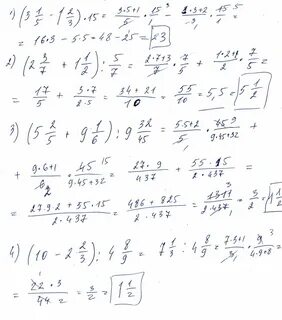 1) (3 1/5 - 1 2/3) · 15 = (3·5+1)/5 · 15³ - (1·3+2)/3 · 15⁵ =
= 16·3 - 5·5 = 48 - 25 = 23
2) (2 3/7 + 1 1/2) : 5/7 = (2·7+3)/7 · 7/5 + (1·2+1)/2 · 7/5 =
= 17/5 + (3·7)/(2·5) = (34+21)/10 = 55/10 = 5,5 = 5 1/2
3) (5 2/5 + 9 1/6) : 9 32/45 = (5·5+2)/5 · 45⁹/(9·45+32) +
+ (9·6+1)/6₂ · 45¹⁵/(9·45+32) = (27·9)/437 + (55·15)/(2·437) =
= (27·9·2 + 55·15)/(2·437) = (486+825)/(2·437) = 1311³/(2·437) = 3/2 = 1 1/2
4) (10 - 2 2/3) : 4 8/9 = 7 1/3 : 4 8/9 = (7·3+1)/3 · 9³/(4·9+8) =
= (22·3)/44₂ = 3/2 = 1 1/2